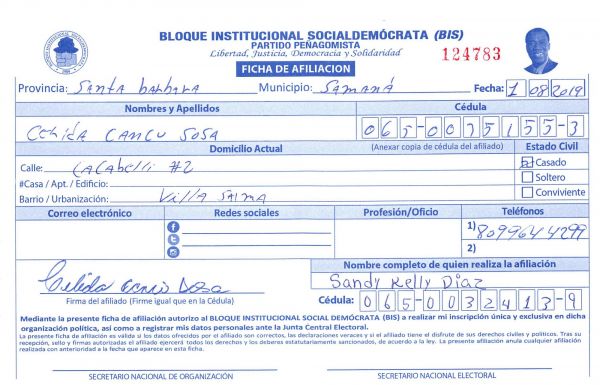 BLOQUE INSTITUCIONAL SOCIALDEMÓCRATA (BIS)
PARTIDO PEÑAGOMISTA
Libertad, Justicia, Democracia y Solidaridad
124783
FICHA DE AFILIACION
Provincia: Santa barbara Municipio: SAMANÁ Fecha: 1 08 2019
Nombres y Apellidos Cédula
SOSA 065-0075155-3
Domicilio Actual (Anexar copia de cédula del afiliado) Estado Civil
Calle: #2 Casado
#Casa / Apt. / Edificio: Soltero
Barrio / Urbanización: Villa Conviviente
Correo electrónico Redes sociales Profesión/Oficio Teléfonos
1) 8099644299
2)
Nombre completo de quien realiza la afiliación
Sandy Kelly Díaz
Firma del afiliado (Firme igual que en la Cédula) Cédula: 065-0032413-9
Mediante la presente ficha de afiliación autorizo al BLOQUE INSTITUCIONAL SOCIAL DEMÓCRATA (BIS) a realizar mi inscripción única y exclusiva en dicha
organización política, así como a registrar mis datos personales ante la Junta Central Electoral.
La presente ficha de afiliación es válida si los datos ofrecidos por el afiliado son correctos, las declaraciones veraces y si el afiliado tiene el disfrute de sus derechos civiles y políticos. Tras su
recepción, sello y firmas autorizadas el afiliado ejercerá todos los derechos y los deberes estatutariamente sancionados, de acuerdo a la ley. La presente afiliación anula cualquier afiliación
realizada con anterioridad a la fecha que aparece en esta ficha.
SECRETARIO NACIONAL DE ORGANIZACIÓN SECRETARIO NACIONAL ELECTORAL